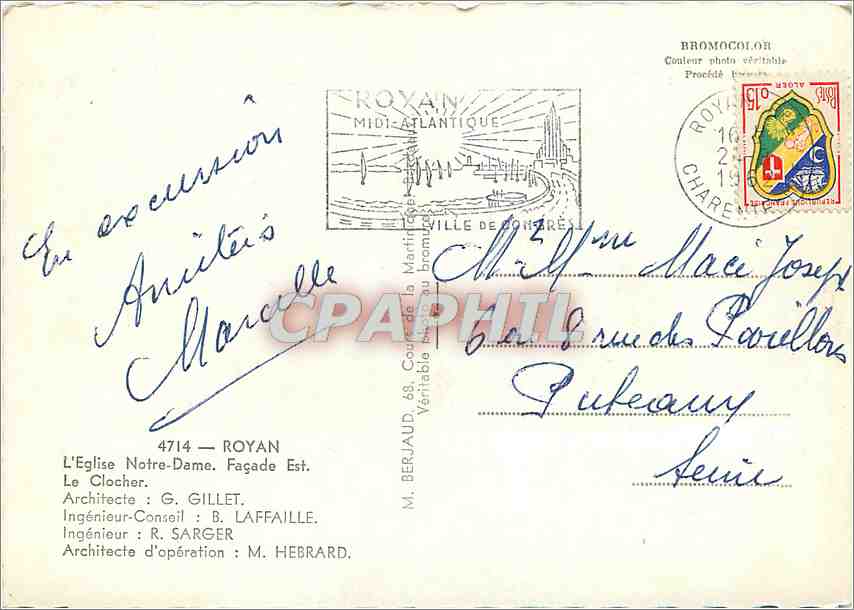 BROMOCOLOR
Couleur photo véritable
Procédé
ROYAN
MIDI-ATLANTIQUE
VILLE DE CONGRÈS
ROYAN
16
2
1962
CHARENTE
POSTES
ALGER
0,15
REPUBLIQUE FRANÇAISE
En excursion
Amitiés
Marcelle
Mr Mme Macé Joseph
6 8 rue des Pavillons
Puteaux
Seine
CPAPHIL
4714 — ROYAN
L'Eglise Notre-Dame. Façade Est.
Le Clocher.
Architecte : G. GILLET.
Ingénieur-Conseil : B. LAFFAILLE.
Ingénieur : R. SARGER
Architecte d'opération : M. HEBRARD.
M. BERJAUD, 68, Cours de la Martinique,
Véritable photo au bromure